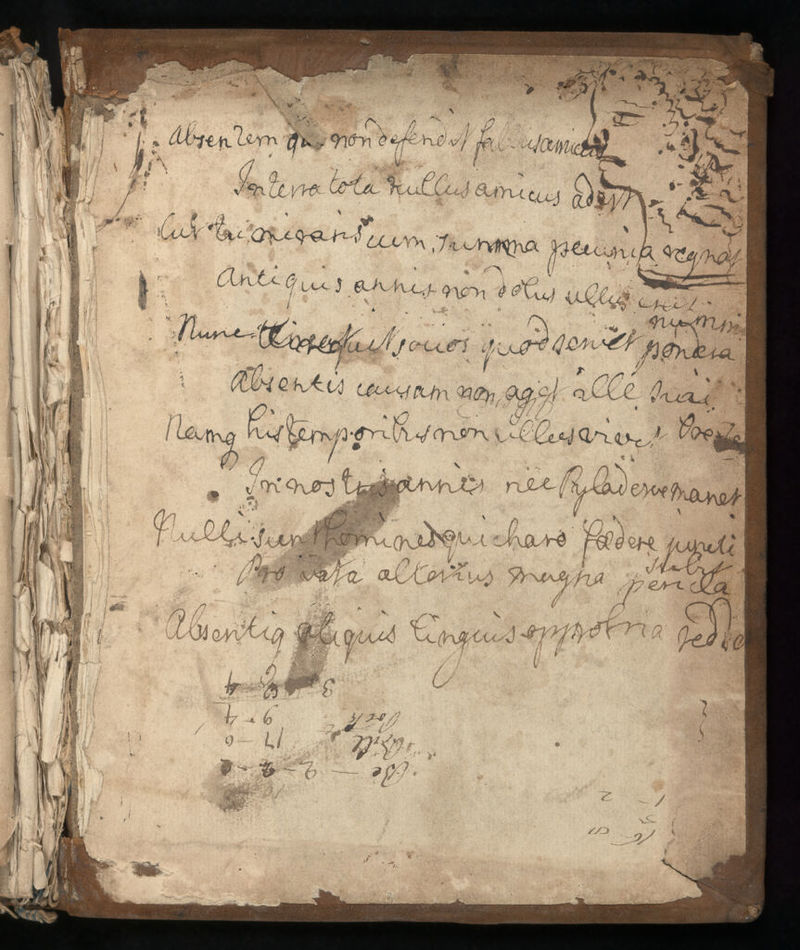 Absentem qui non defendit falsus amicus
In terra tota nullus amicus adest
Cur tu miraris cum summa pecunia regnat
Antiquis annis non dolus ullus erat
Nunc socios quod servet pondera nummi
Absentis causam non aget ille sui
Namq his temporibus non ullus vivit
In nostris annis nec Pylades remanet
Nulli sunt homines qui charo fædere juncti
Pro vita alterius magna pericla subit
Absentiq aliquis linguis opprobria
3 4
9 - 4
17 - 0
Be — 2 -
1 - 2
16